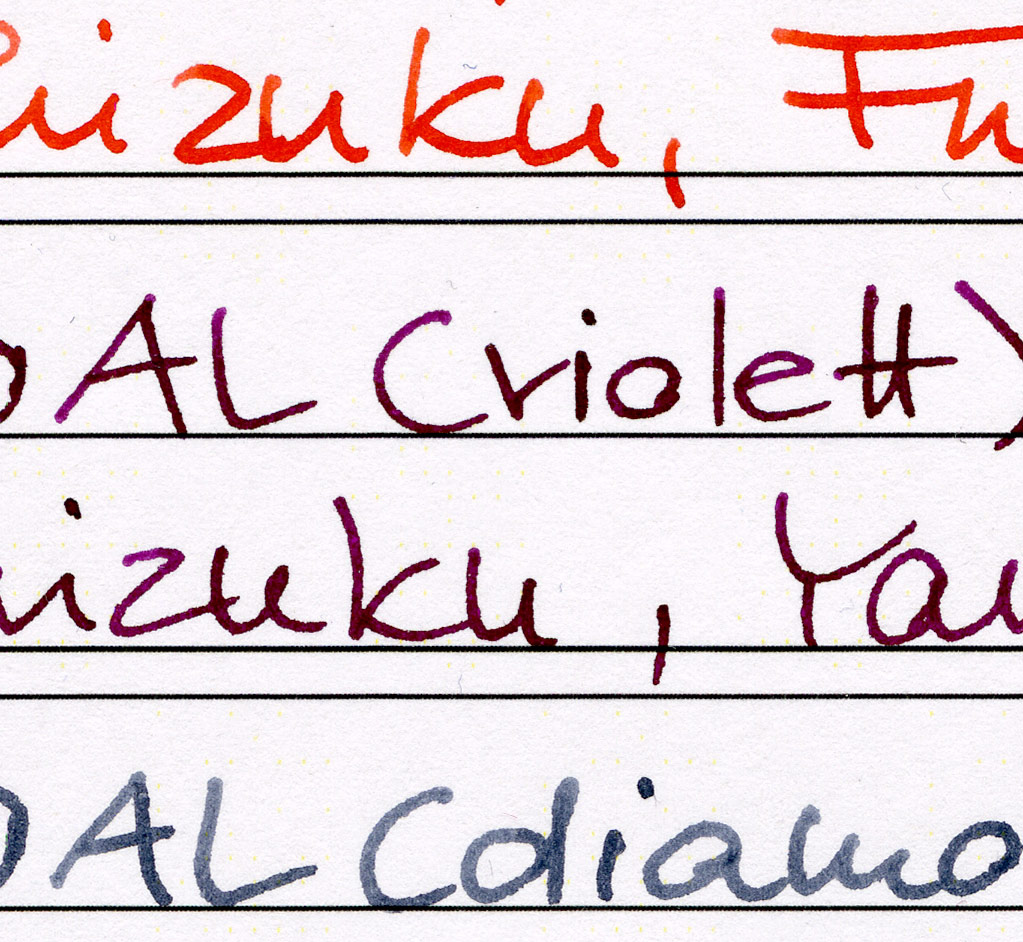 uizuku, Fu
DAL Criolett Y
uizuku, Yau
DAL Cdiamo